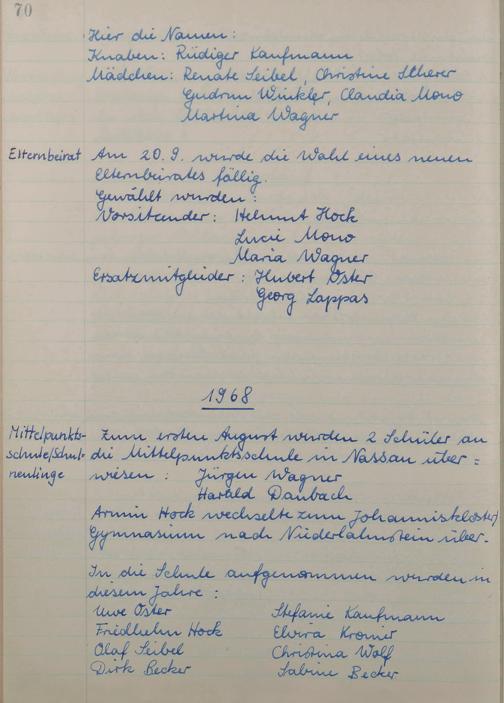 70
Hier die Namen:
Knaben: Rüdiger Kaufmann
Mädchen: Renate Seibel, Christine Scherer
Gudrun Winkler, Claudia Mono
Martina Wagner
Elternbeirat Am 20.9. wurde die Wahl eines neuen
Elternbeirates fällig.
Gewählt wurden:
Vorsitzender: Helmut Hock
Lucie Mono
Maria Wagner
Ersatzmitglieder: Hubert Oster
Georg Lappas
1968
Mittelpunkts- Zum ersten August wurden 2 Schüler an
schule/Schul- die Mittelpunktsschule in Nassau über=
neulinge wiesen: Jürgen Wagner
Harald Daubach
Armin Hock wechselte zum Johanniskloster/
Gymnasium nach Niederlahnstein über.
In die Schule aufgenommen wurden in
diesem Jahre:
Uwe Oster Stefanie Kaufmann
Friedhelm Hock Elvira Kromer
Olaf Seibel Christina Wolf
Dirk Becker Sabine Becker